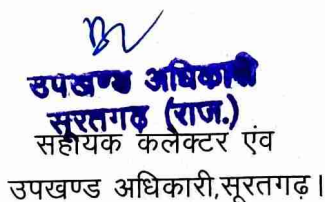 उपखण्ड अधिकारी
सूरतगढ़ (राज.)
सहायक कलेक्टर एंव
उपखण्ड अधिकारी,सूरतगढ़।